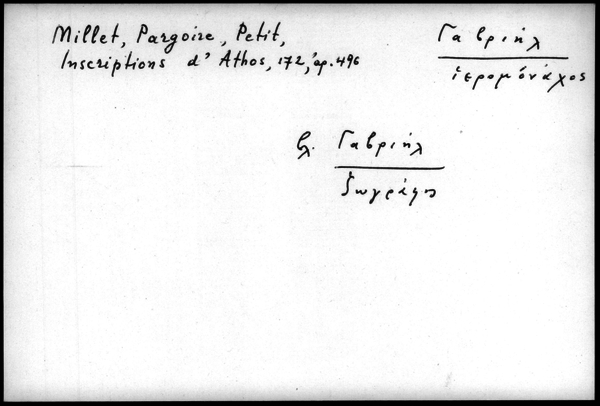 Millet, Pargoire, Petit,
Inscriptions d'Athos, 172, ἀρ. 496
Γαβριήλ
ἱερομόναχος
βλ. Γαβριήλ
ζωγράφος